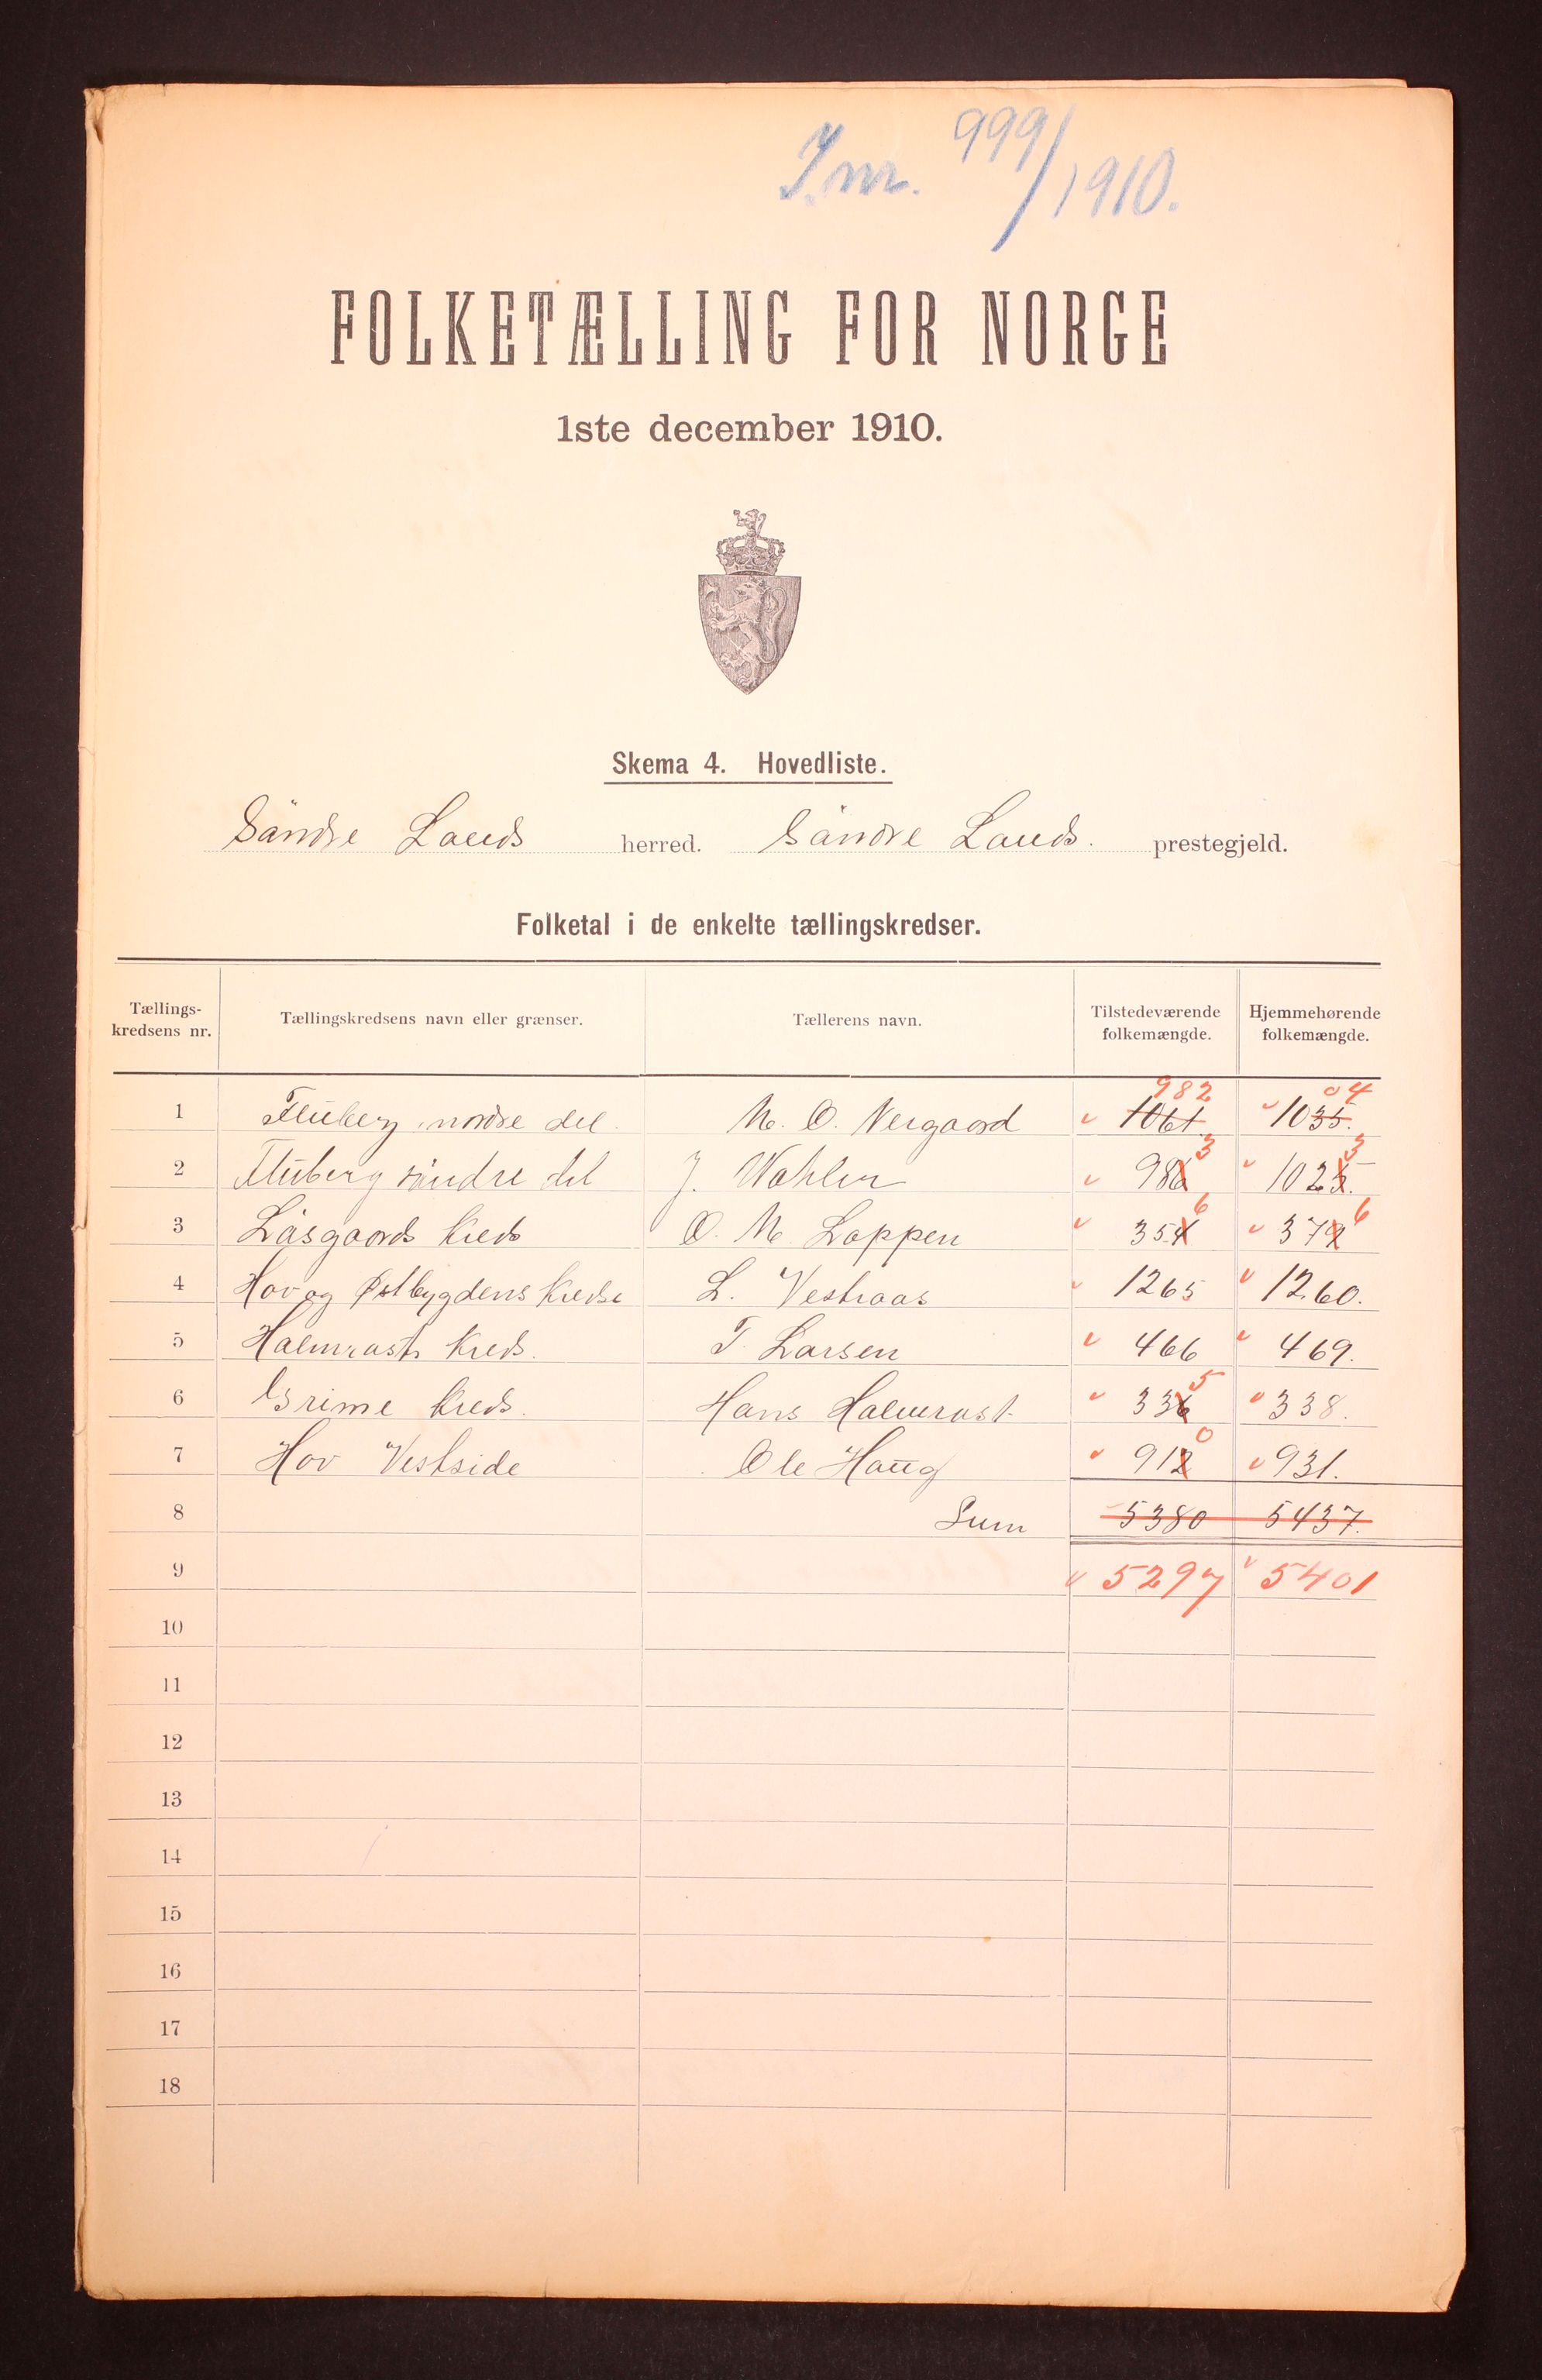 J.nr. 999/1910.
FOLKETÆLLING FOR NORGE
1ste december 1910.
Skema 4. Hovedliste.
Söndre Lands herred. Söndre Lands. prestegjeld.
Folketal i de enkelte tællingskredser.
Tællings-kredsens nr. Tællingskredsens navn eller grænser. Tællerens navn. Tilstedeværende folkemængde. Hjemmehørende folkemængde.
982 04
1 Fluberg nordre del. M. O. Nergaard 1061 1035.
3 3
2 Fluberg söndre del J. Wahler 986 1025.
6 6
3 Låsgaards Kreds O. M. Lappen 354 379
4 Hov og Østbygdens Kredse L. Vestraas 1265 1260.
5 Halmrasts Kreds. T. Larsen 466 469.
5
6 Grime Kreds. Hans Halmrast 336 338.
0
7 Hov Vestside Ole Haug 912 931.
8 Sum 5380 5437.
9 5297 5401
10
11
12
13
14
15
16
17
18